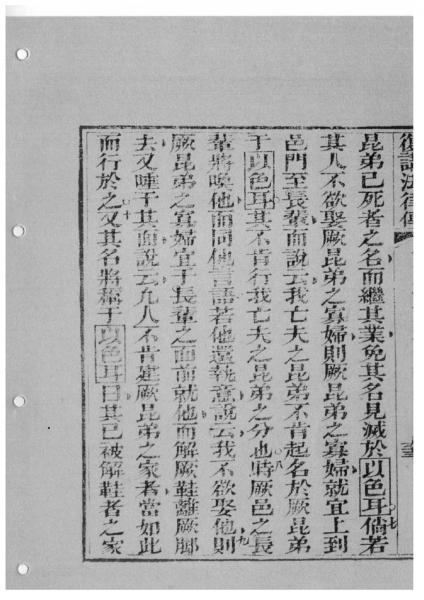 復講法律傳
昆弟已死者之名而繼其業免其名見滅於以色耳七倘若
其人不欲娶厥昆弟之寡婦則厥昆弟之寡婦就宜上到
邑門至長輩面說云我亡夫之昆弟不肯起名於厥昆弟
于以色耳其不肯行我亡夫之昆弟之分也八時厥邑之長
輩將喚他而同他言語若他還執意說云我不欲娶他九則
厥昆弟之寡婦宜于長輩之面前就他而解厥鞋離厥脚
去又唾于其面說云凡人不肯建厥昆弟之家者當如此
而行於之十又其名將稱于以色耳曰其已被解鞋者之家